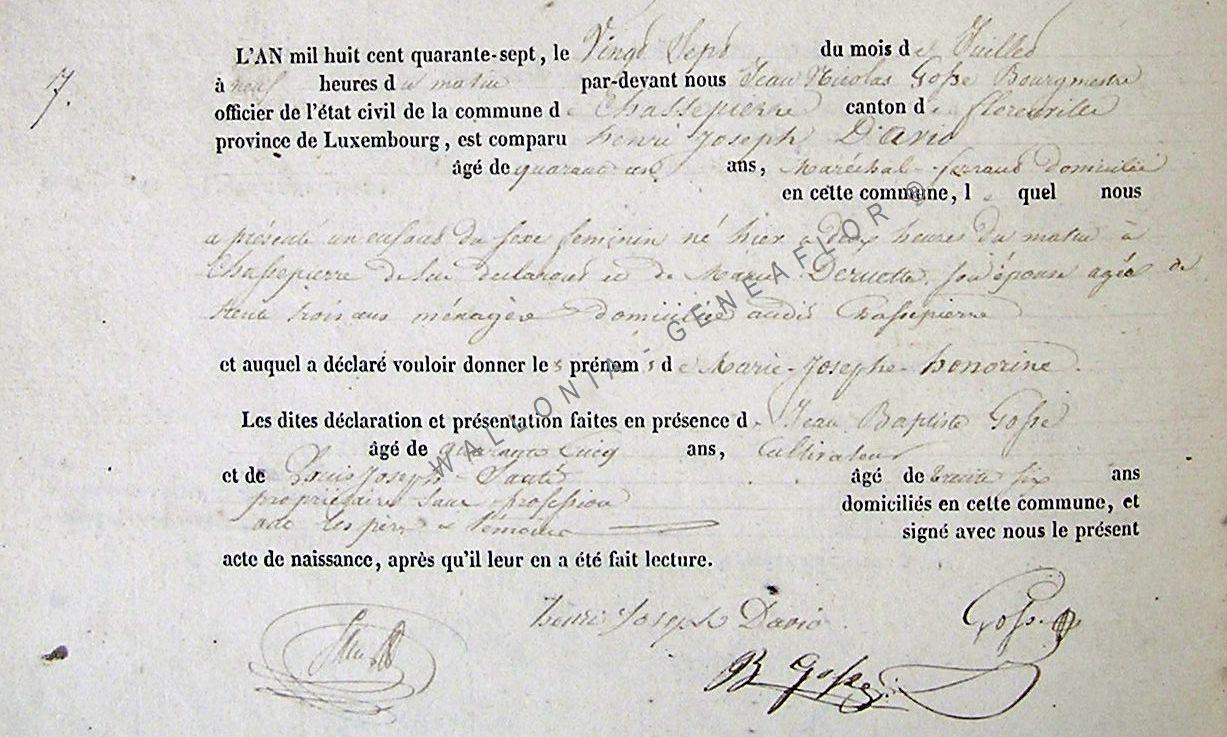 7.
L'AN mil huit cent quarante-sept, le Vingt Sept du mois de Juillet
à neuf heures du matin par-devant nous Jean Nicolas Gosse Bourgmestre
officier de l'état civil de la commune de Chassepierre canton de florenville
province de Luxembourg, est comparu henri Joseph David
âgé de quarante ans, Maréchal-ferrant domicilié
en cette commune, le quel nous
a présenté un enfant du sexe feminin né hier a deux heures du matin à
Chassepierre de lui declarant et de Marie Deruette son épouse agée de
trente trois ans ménagère domiciliée audit Chassepierre
et auquel a déclaré vouloir donner les prénoms de Marie-Josephe-honorine.
Les dites déclaration et présentation faites en présence de Jean Baptiste Gosse
âgé de quarante Cinq ans, Cultivateur
et de Louis Joseph Santé âgé de trente six ans
propriétaire sans profession domiciliés en cette commune, et
avec les père & temoins signé avec nous le présent
acte de naissance, après qu'il leur en a été fait lecture.
henri Joseph David Gosse
B Gosse
WALLONIA GENEAFLOR ©